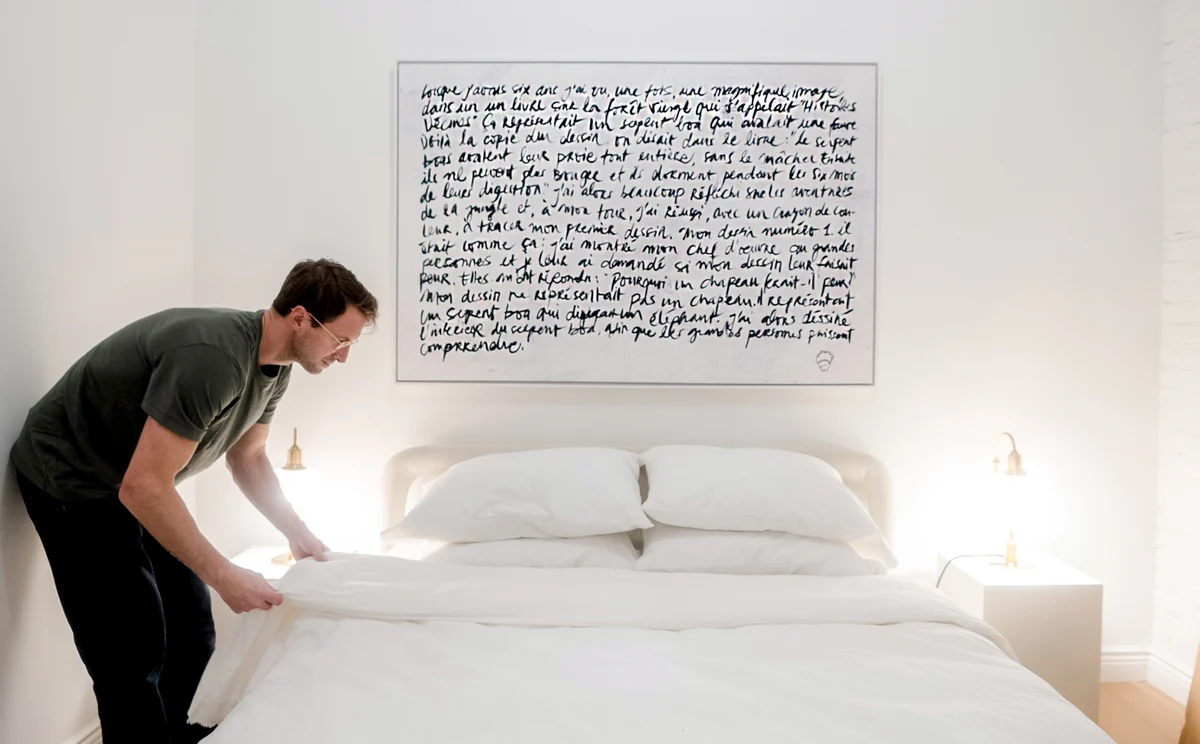 Lorsque j'avais six ans j'ai vu, une fois, une magnifique image,
dans un un livre sur la forêt vierge qui s'appelait "Histoires
Vécues" ça représentait un serpent boa qui avalait une fauve
Voilà la copie du dessin. on disait dans le livre : "le serpent
boas avalent leur proie tout entière, sans le mâcher Ensuite
ils ne peuvent plus bouger et ils dorment pendant les six mois
de leurs digestion" j'ai alors beaucoup réfléchi sur les aventures
de la jungle et, à mon tour, j'ai réussi, avec un crayon de cou-
leur, à tracer mon premier dessin. Mon dessin numéro 1. il
était comme ça : j'ai montré mon chef d'œuvre au grandes
personnes et je leur ai demandé si mon dessin leur faisait
peur. Elles m'ont répondu : "Pourquoi un chapeau ferait-il peur"
Mon dessin ne représentait pas un chapeau. Il représentait
un serpent boa qui digérait un éléphant. J'ai alors dessiné
l'intérieur du serpent boa. Afin que les grandes personnes puissent
comprendre.